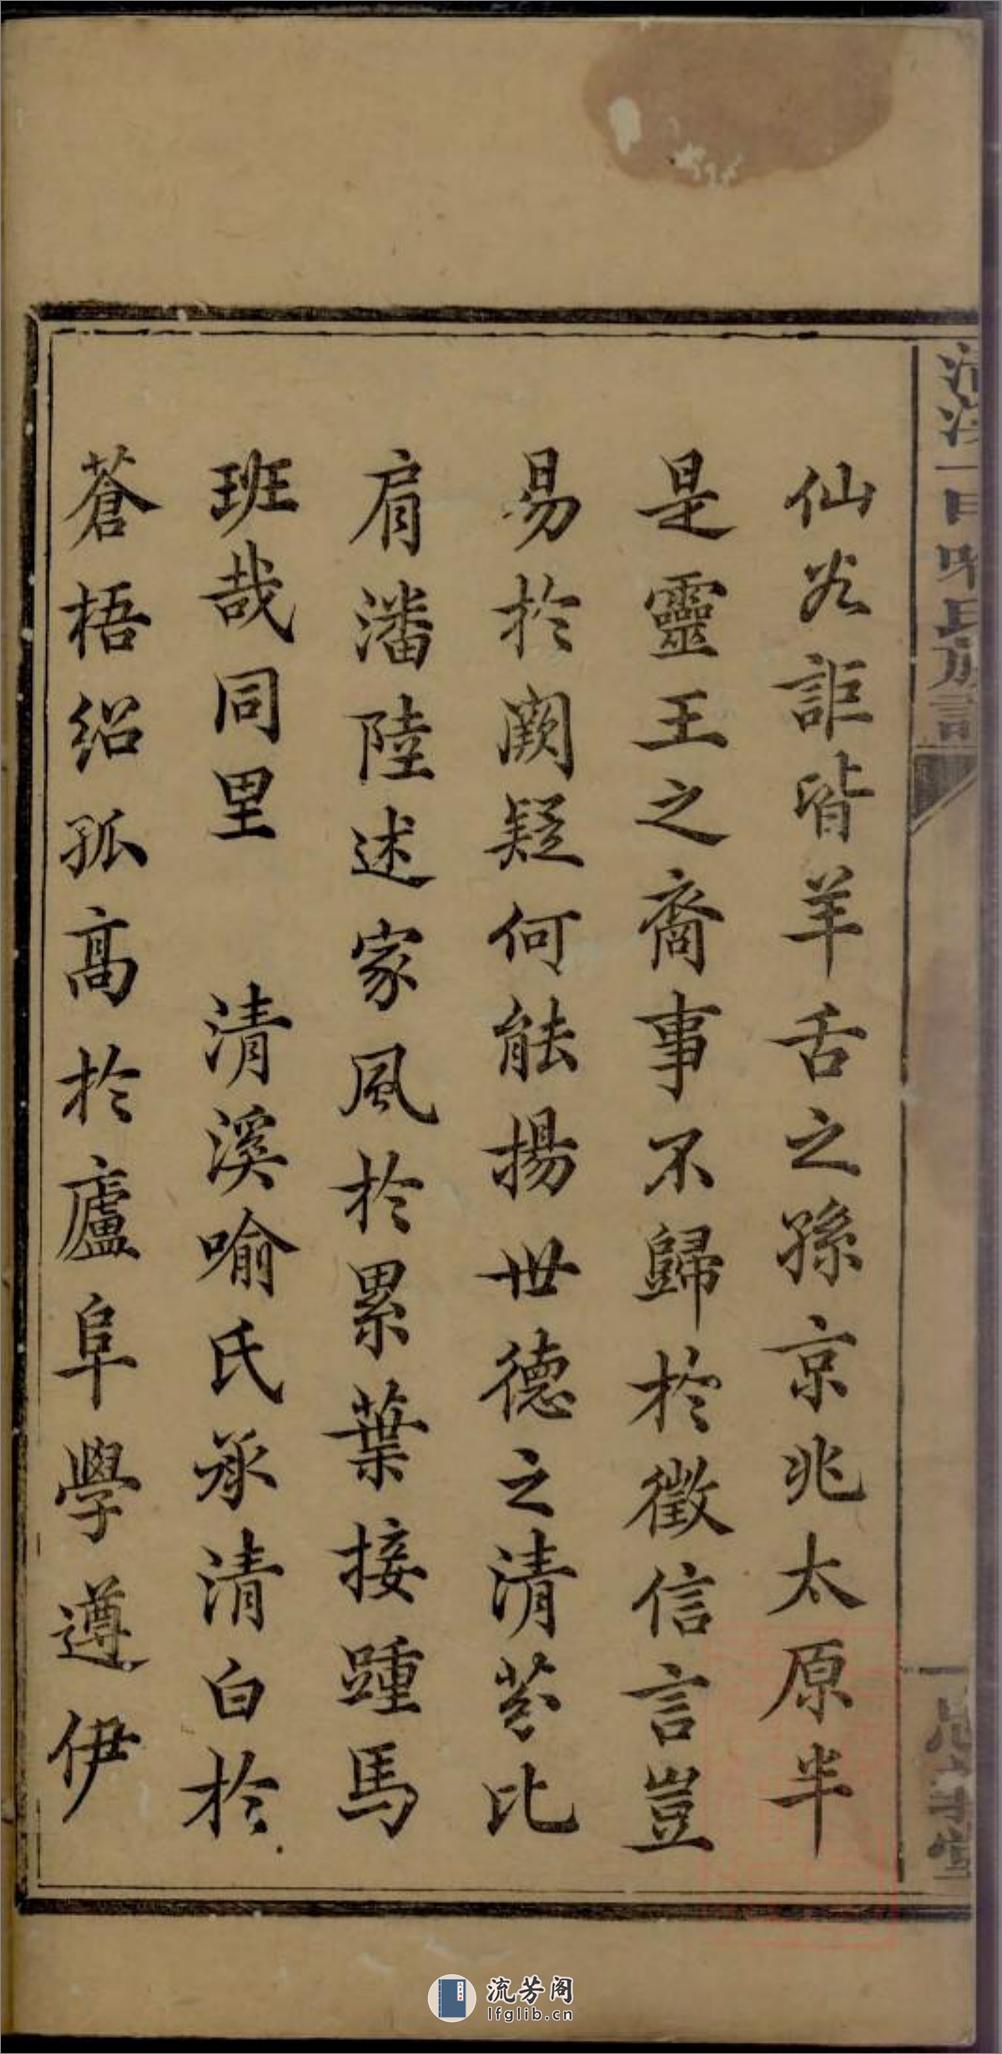 仙谷詎皆羊舌之孫京兆太原半
是靈王之裔事不歸於徵信言豈
易於闕疑何能揚世德之清芬比
肩潘陸述家風於累葉接踵馬
班哉同里　清溪喻氏承清白於
蒼梧紹孤高於廬阜學遵伊
氏族
流芳阁
lfglib.cn